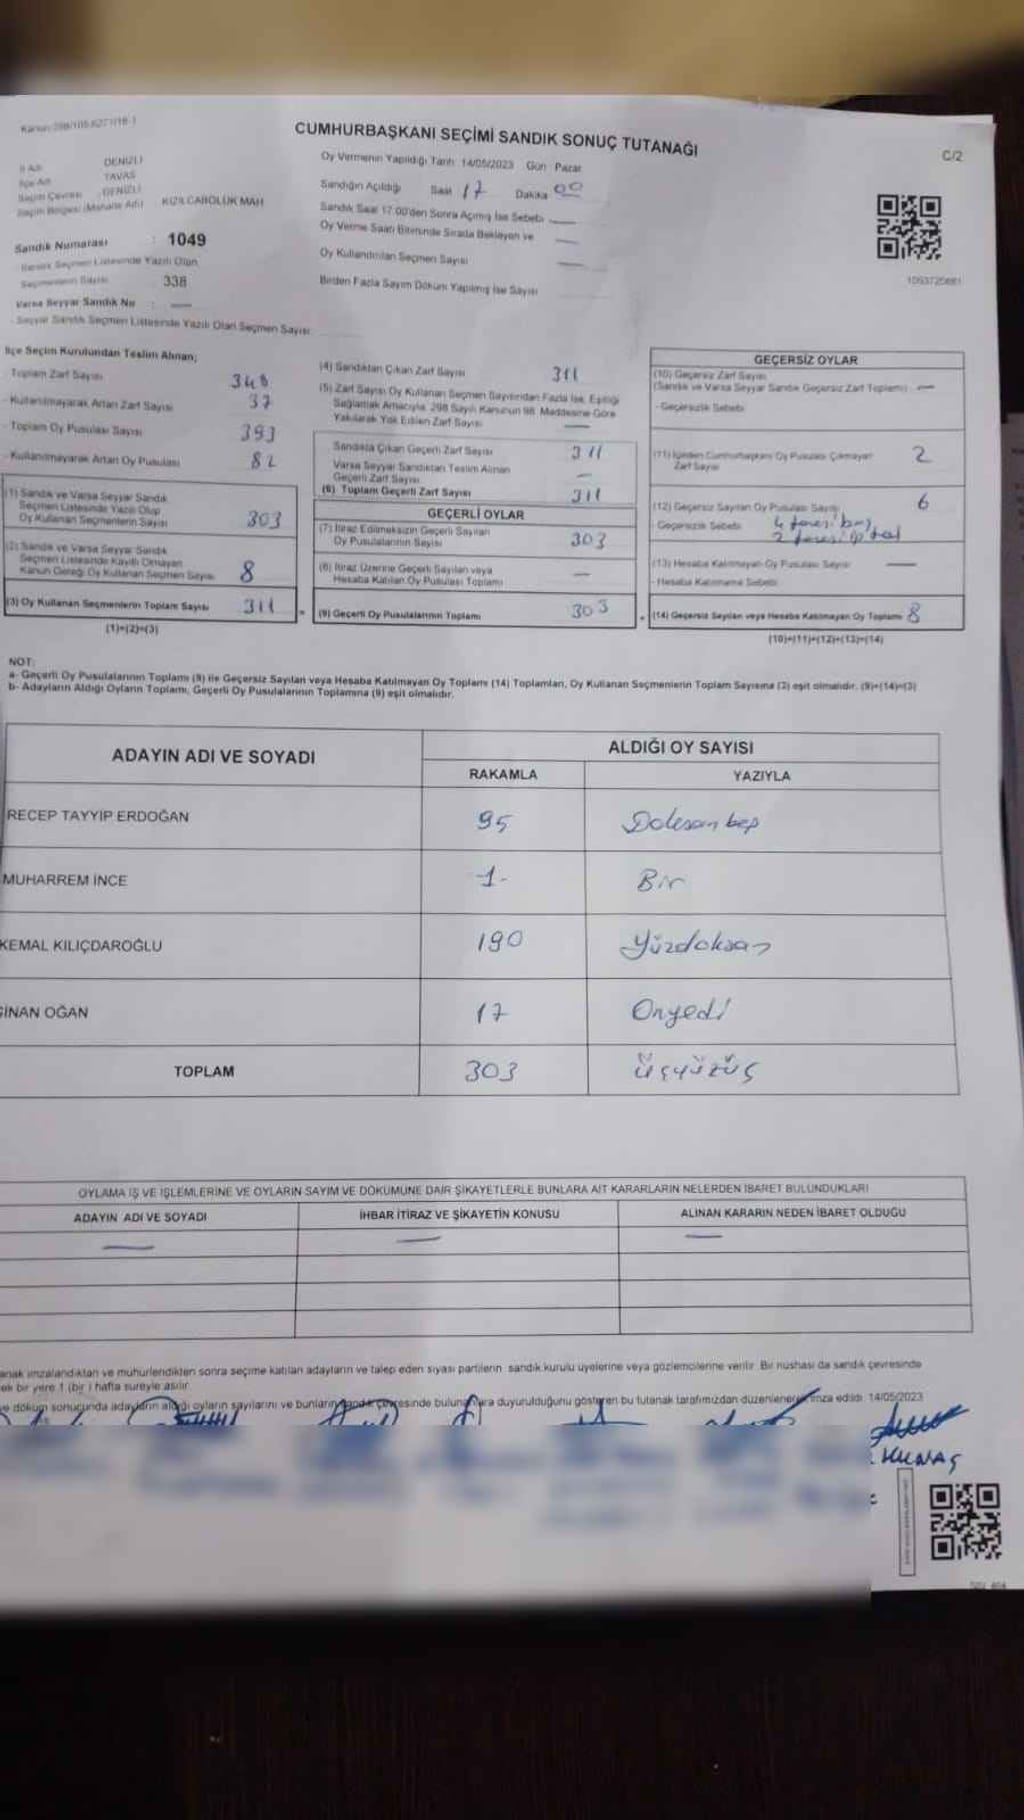 Kanun:298/105,6271/18-1
CUMHURBAŞKANI SEÇİMİ SANDIK SONUÇ TUTANAĞI
C/2
İl Adı DENİZLİ
İlçe Adı TAVAS
Seçim Çevresi DENİZLİ
Seçim Bölgesi (Mahalle Adı) KIZILCABÖLÜK MAH
Oy Vermenin Yapıldığı Tarih: 14/05/2023 Gün : Pazar
Sandığın Açıldığı Saat 17 Dakika 00
Sandık Saat 17.00'den Sonra Açılmış İse Sebebi —
Oy Verme Saati Bitiminde Sırada Bekleyen ve —
Oy Kullandırılan Seçmen Sayısı —
Birden Fazla Sayım Döküm Yapılmış İse Sayısı
Sandık Numarası : 1049
Sandık Seçmen Listesinde Yazılı Olan
Seçmenlerin Sayısı 338
Varsa Seyyar Sandık No : —
Seyyar Sandık Seçmen Listesinde Yazılı Olan Seçmen Sayısı
İlçe Seçim Kurulundan Teslim Alınan;
Toplam Zarf Sayısı 348
- Kullanılmayarak Artan Zarf Sayısı 37
- Toplam Oy Pusulası Sayısı 393
- Kullanılmayarak Artan Oy Pusulası 82
(1) Sandık ve Varsa Seyyar Sandık
Seçmen Listesinde Yazılı Olup
Oy Kullanan Seçmenlerin Sayısı 303
(2) Sandık ve Varsa Seyyar Sandık
Seçmen Listesinde Kayıtlı Olmayan
Kanun Gereği Oy Kullanan Seçmen Sayısı 8
(3) Oy Kullanan Seçmenlerin Toplam Sayısı 311
(1)+(2)=(3)
(4) Sandıktan Çıkan Zarf Sayısı 311
(5) Zarf Sayısı Oy Kullanan Seçmen Sayısından Fazla İse, Eşitliği
Sağlamak Amacıyla, 298 Sayılı Kanunun 98. Maddesine Göre
Yakılarak Yok Edilen Zarf Sayısı —
Sandıkta Çıkan Geçerli Zarf Sayısı 311
Varsa Seyyar Sandıktan Teslim Alınan
Geçerli Zarf Sayısı —
(6) Toplam Geçerli Zarf Sayısı 311
GEÇERLİ OYLAR
(7) İtiraz Edilmeksizin Geçerli Sayılan
Oy Pusulalarının Sayısı 303
(8) İtiraz Üzerine Geçerli Sayılan veya
Hesaba Katılan Oy Pusulası Toplamı —
(9) Geçerli Oy Pusulalarının Toplamı 303
GEÇERSİZ OYLAR
(10) Geçersiz Zarf Sayısı
(Sandık ve Varsa Seyyar Sandık Geçersiz Zarf Toplamı) —
- Geçersizlik Sebebi
(11) İçinden Cumhurbaşkanı Oy Pusulası Çıkmayan
Zarf Sayısı 2
(12) Geçersiz Sayılan Oy Pusulası Sayısı 6
- Geçersizlik Sebebi 4 tanesi boş
2 tanesi iptal
(13) Hesaba Katılmayan Oy Pusulası Sayısı —
- Hesaba Katılmama Sebebi
(14) Geçersiz Sayılan veya Hesaba Katılmayan Oy Toplamı 8
(10)+(11)+(12)+(13)=(14)
NOT:
a- Geçerli Oy Pusulalarının Toplamı (9) ile Geçersiz Sayılan veya Hesaba Katılmayan Oy Toplamı (14) Toplamları, Oy Kullanan Seçmenlerin Toplam Sayısına (3) eşit olmalıdır. (9)+(14)=(3)
b- Adayların Aldığı Oyların Toplamı, Geçerli Oy Pusulalarının Toplamına (9) eşit olmalıdır.
ADAYIN ADI VE SOYADI ALDIĞI OY SAYISI
RAKAMLA YAZIYLA
RECEP TAYYİP ERDOĞAN 95 Doksan beş
MUHARREM İNCE -1- Bir
KEMAL KILIÇDAROĞLU 190 Yüzdoksan
SİNAN OĞAN 17 Onyedi
TOPLAM 303 üçyüzüç
OYLAMA İŞ VE İŞLEMLERİNE VE OYLARIN SAYIM VE DÖKÜMÜNE DAİR ŞİKAYETLERLE BUNLARA AİT KARARLARIN NELERDEN İBARET BULUNDUKLARI
ADAYIN ADI VE SOYADI İHBAR İTİRAZ VE ŞİKAYETİN KONUSU ALINAN KARARIN NEDEN İBARET OLDUĞU
— — —
anak imzalandıktan ve mühürlendikten sonra seçime katılan adayların ve talep eden siyasi partilerin sandık kurulu üyelerine veya gözlemcilerine verilir. Bir nüshası da sandık çevresinde
ek bir yere 1 (bir) hafta süreyle asılır.
ve döküm sonucunda adayların aldığı oyların sayılarını ve bunların sandık çevresinde bulunanlara duyurulduğunu gösteren bu tutanak tarafımızdan düzenlenerek imza edildi. 14/05/2023